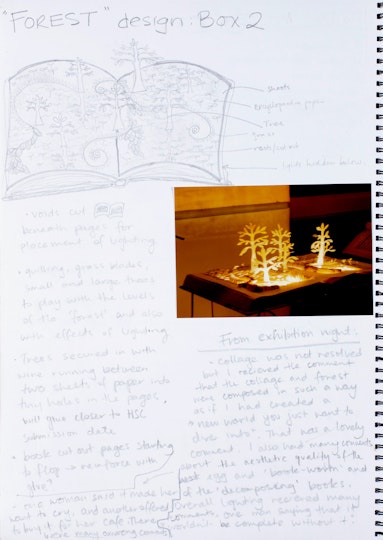 "FOREST" design: Box 2
shoots
encyclopedia pages
Tree
grass
roots/cut out
lights hidden below
• voids cut
beneath pages for
placement of lighting.
• quilling, grass blades,
small and large trees
to play with the levels
of the 'forest' and also
with effects of lighting
• Trees secured in with
wire running between
two sheets of paper into
tiny holes in the pages,
will glue closer to HSC
submission date
• book cut out pages starting
to flop → reinforce with
glue?
From exhibition night:
• Collage was not resolved
but I recieved the comment
that the collage and forest
were composed in such a way
as if I had created a
"new world you just want to
dive into". That was a lovely
comment. I also had many comments
about the aesthetic quality of the
egg and 'book-worm' and
of the 'decomposing' books.
• Overall lighting recieved many
comments, one even saying that it
wouldn't be complete without it.
• one woman said it made her
want to cry, and another offered
to buy it for her cafe. There
were many amazing comments